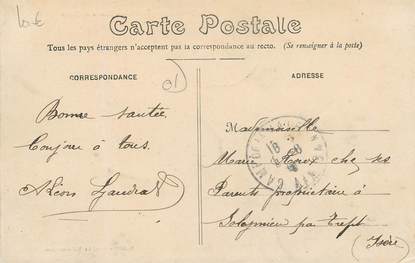 10€
Carte Postale
Tous les pays étrangers n'acceptent pas la correspondance au recto. (Se renseigner à la poste)
CORRESPONDANCE
ADRESSE
01
Bonne santée
Bonjour à tous
Mademoiselle
Marie chez ses
Parents propriétaire à
Solaymieu par Trept
(Isère)